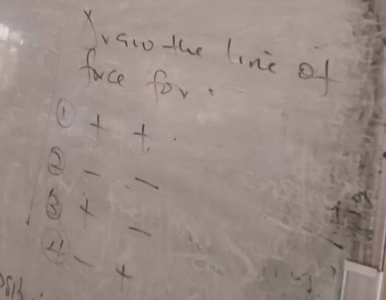 Draw the line of
force for:
① + +
② - -
③ + -
④ - +